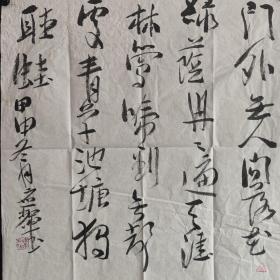 门外无人问落花
绿荫冉冉遍天涯
林莺啼到无声
处青草池塘独
听蛙甲申冬月